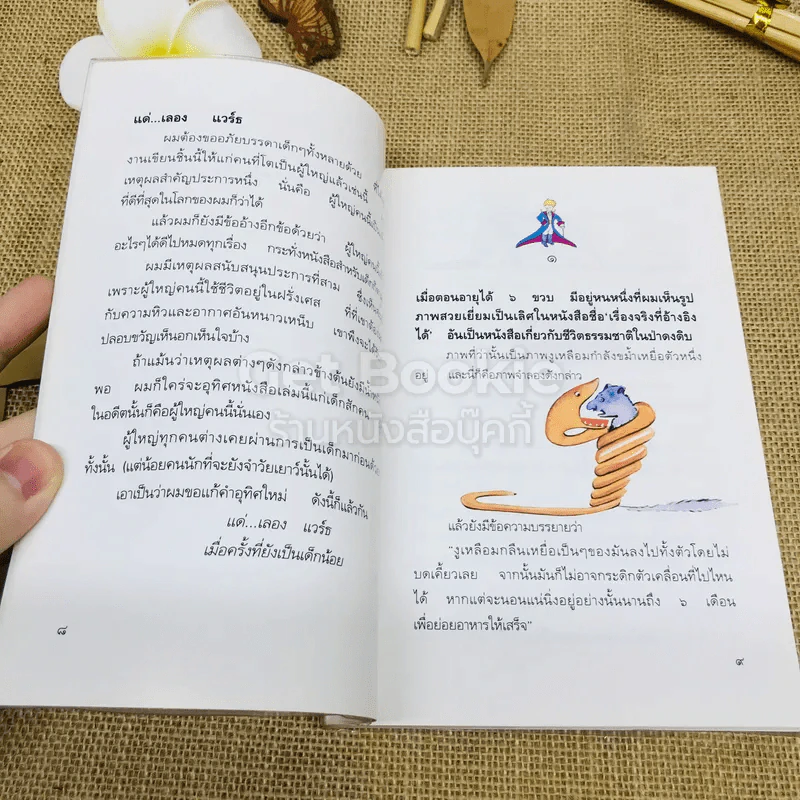 แด่...เลอง แวร์ธ
ผมต้องขออภัยบรรดาเด็กๆทั้งหลายด้วย ที่
งานเขียนชิ้นนี้ให้แก่คนที่โตเป็นผู้ใหญ่แล้วเช่นนี้
เหตุผลสำคัญประการหนึ่ง นั่นคือ ผู้ใหญ่คนนี้
ที่ดีที่สุดในโลกของผมก็ว่าได้
แล้วผมก็ยังมีข้ออ้างอีกข้อด้วยว่า ผู้ใหญ่
อะไรๆได้ดีไปหมดทุกเรื่อง กระทั่งหนังสือสำหรับเด็ก
ผมมีเหตุผลสนับสนุนประการที่สาม ซึ่ง
เพราะผู้ใหญ่คนนี้ใช้ชีวิตอยู่ในฝรั่งเศส ที่ที่เขาต้อง
กับความหิวและอากาศอันหนาวเหน็บ เขาพึงจะได้
ปลอบขวัญเห็นอกเห็นใจบ้าง
ถ้าแม้นว่าเหตุผลต่างๆดังกล่าวข้างต้นยังมี
พอ ผมก็ใคร่จะอุทิศหนังสือเล่มนี้แก่เด็กสักคน
ในอดีตนั้นก็คือผู้ใหญ่คนนี้นั่นเอง
ผู้ใหญ่ทุกคนต่างเคยผ่านการเป็นเด็กมาก่อน
ทั้งนั้น (แต่น้อยคนนักที่จะยังจำวัยเยาว์นั้นได้)
เอาเป็นว่าผมขอแก้คำอุทิศใหม่ ดังนี้ก็แล้วกัน
แด่...เลอง แวร์ธ
เมื่อครั้งที่ยังเป็นเด็กน้อย
๘
๑
เมื่อตอนอายุได้ ๖ ขวบ มีอยู่หนหนึ่งที่ผมเห็นรูป
ภาพสวยเยี่ยมเป็นเลิศในหนังสือชื่อ'เรื่องจริงที่อ้างอิง
ได้' อันเป็นหนังสือเกี่ยวกับชีวิตธรรมชาติในป่าดงดิบ
ภาพที่ว่านั้นเป็นภาพงูเหลือมกำลังขม้ำเหยื่อตัวหนึ่ง
อยู่ และนี่ก็คือภาพจำลองดังกล่าว
แล้วยังมีข้อความบรรยายว่า
"งูเหลือมกลืนเหยื่อเป็นๆของมันลงไปทั้งตัวโดยไม่
บดเคี้ยวเลย จากนั้นมันก็ไม่อาจกระดิกตัวเคลื่อนที่ไปไหน
ได้ หากแต่จะนอนแน่นิ่งอยู่อย่างนั้นนานถึง ๖ เดือน
เพื่อย่อยอาหารให้เสร็จ"
๙
Get Bookie
ร้านหนังสือบุ๊คกี้